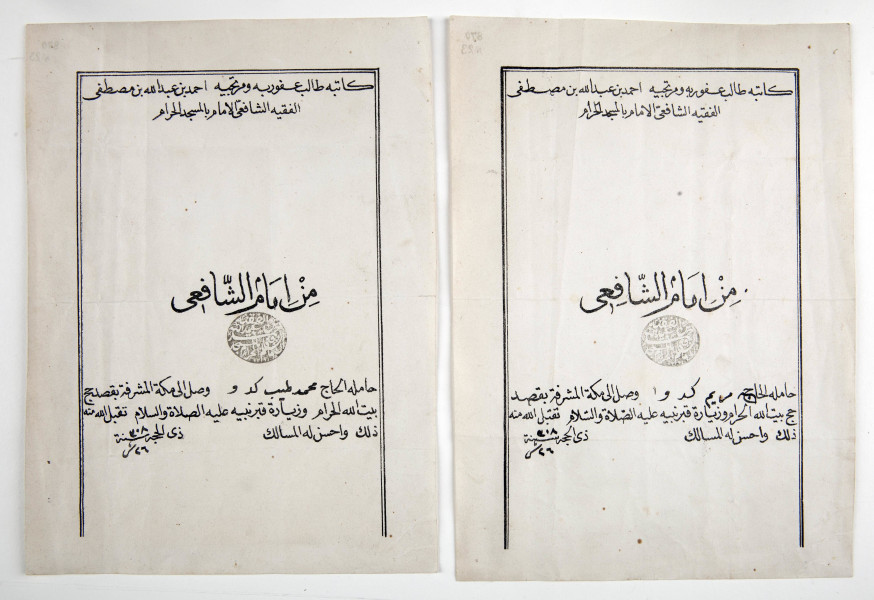 كاتبه طالب عفو ربه ومرتجيه احمد بن عبد الله بن مصطفى
الفقيه الشافعى الامام بالمسجد الحرام
مِنْ اِمَامُ الشَّافِعِى
حامله الحاج محمد طيب كدو وصل الى مكة المشرفة بقصد حج
بيت الله الحرام وزيارة قبر نبيه عليه الصلاة والسلام تقبل الله منه
ذلك واحسن له المسالك ذى الحجة سنة ١٣٠٨
٢٦
كاتبه طالب عفو ربه ومرتجيه احمد بن عبد الله بن مصطفى
الفقيه الشافعى الامام بالمسجد الحرام
مِنْ اِمَامُ الشَّافِعِى
حامله الحاجه مريم كدو وصل الى مكة المشرفة بقصد
حج بيت الله الحرام وزيارة قبر نبيه عليه الصلاة والسلام تقبل الله منه
ذلك واحسن له المسالك ذى الحجة سنة ١٣٠٨
٢٦